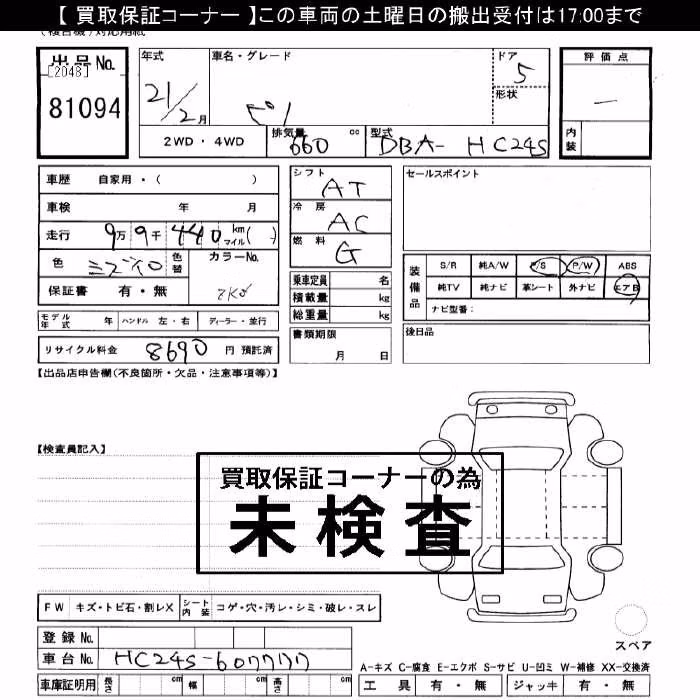 【 買取保証コーナー 】この車両の土曜日の搬出受付は17:00まで
出品 No.
[2048]
81094
年式
21/2月
車名・グレード
ピノ
ドア
5
形状
評価点
内装
2WD・4WD
排気量 660 cc
型式 DBA- HC24S
車歴 自家用・( )
車検 年 月
走行 9万 9千 440 km マイル ( )
色 ミズイロ 色替
カラーNo. ZK0
保証書 有・無
シフト AT
冷房 AC
燃料 G
乗車定員 名
積載量 kg
総重量 kg
セールスポイント
装備品
S/R 純A/W P/S P/W ABS
純TV 純ナビ 革シート 外ナビ エアB
ナビ型番：
モデル年式 年 ハンドル 左・右 ディーラー・並行
書類期限
月 日
後日品
リサイクル料金 8690 円 預託済
【出品店申告欄(不良箇所・欠品・注意事項等)】
【検査員記入】
買取保証コーナーの為
未検査
FW キズ・トビ石・割レX
シート内装 コゲ・穴・汚レ・シミ・破レ・スレ
スペア
登録 No.
車台 No. HC24S-607777
A-キズ C-腐食 E-エクボ S-サビ U-凹ミ W-補修 XX-交換済
車庫証明用 長さ cm 幅 cm 高さ cm
工具 有・無 ジャッキ 有・無